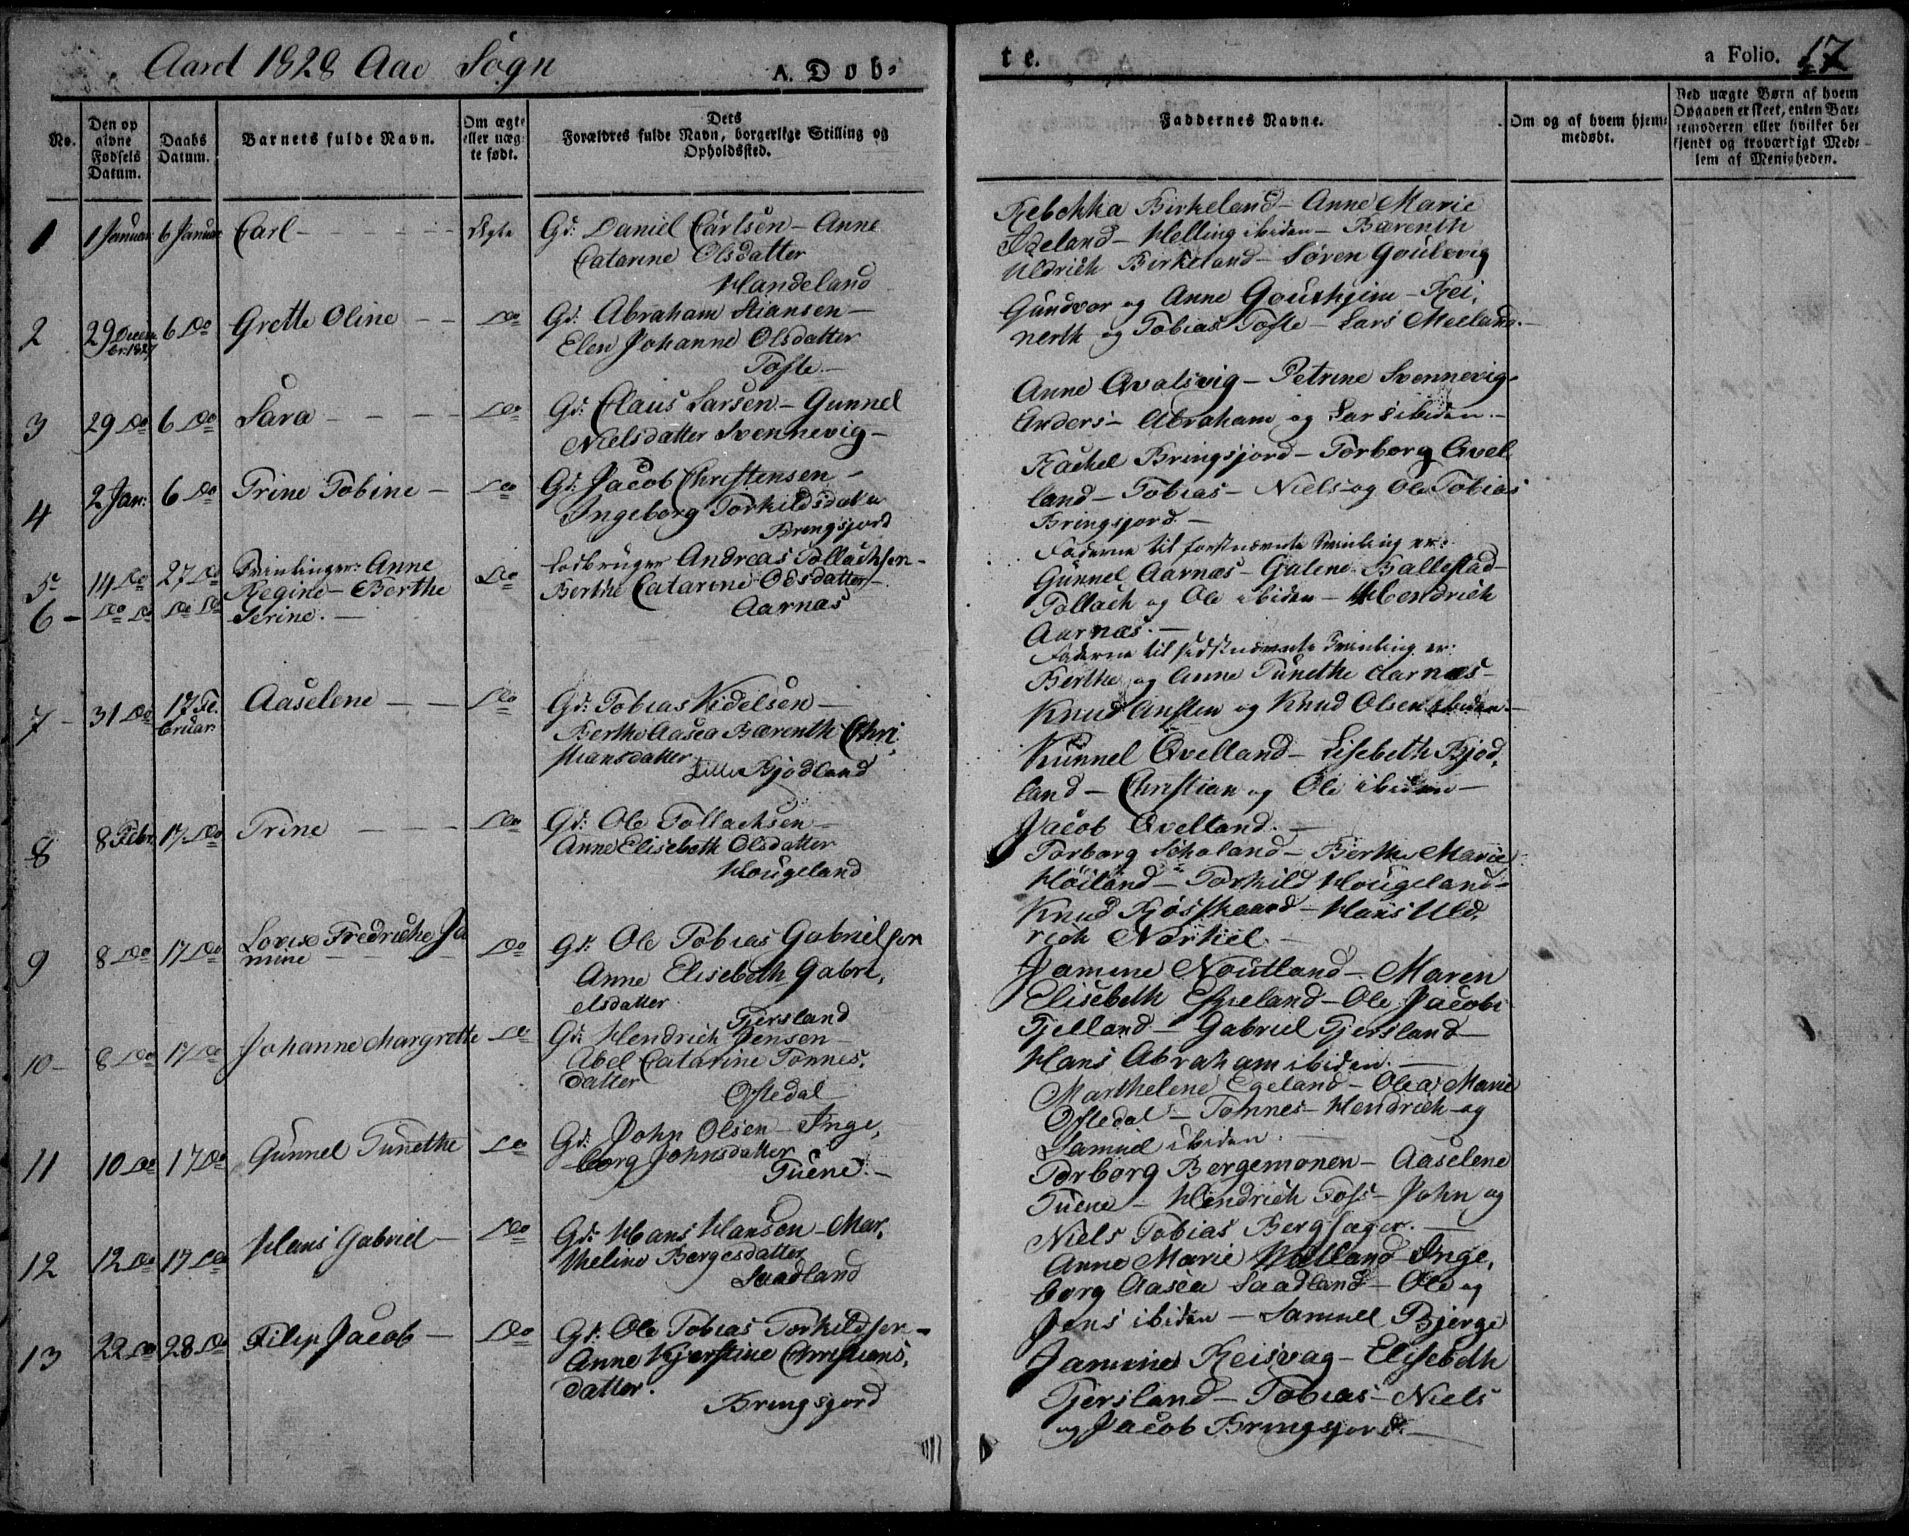 Aaret 1828 Aae Sogn
A. Døb-
te.
a Folio. 17
No.
Den op
givne
Fødsels
Datum.
Daabs
Datum.
Barnets fulde Navn.
Om ægte
eller uæg-
te født.
Dets
Forældres fulde Navn, borgerlige Stilling og
Opholdssted.
Faddernes Navne.
Om og af hvem hjem-
medøbt.
Ved uægte Børn af hvem
Opgaven er skeet, enten Bar-
nemoderen eller hvilket be-
kjendt og troværdigt Med-
lem af Menigheden.
1
1 Januar
6 Januar
Carl
Ægte
Gd: Daniel Carlsen - Anne
Catarine Olsdatter
Handeland
Rebekka Birkeland - Anne Marie
Ideland - Helling ibiden - Bærenth
Uldrich Birkeland - Søren Goulevig
2
29 Decem
br. 1827
6 Do
Grette Oline
Do
Gd: Abraham Stiansen -
Elen Johanne Olsdatter
Tofte -
Gundvor og Anne Gouthjem - Rei,
nerth og Tobias Tofte - Lars Meeland. -
3
29 Do
6 Do
Sara
Do
Gd: Claus Larsen - Gunnel
Nielsdatter Svennevig -
Anne Qvalsvig - Petrine Svennevig -
Anders - Abraham og Lars ibiden. -
4
2 Jan:
6 Do
Trine Tobine -
Do
Gd: Jacob Christensen -
Ingeborg Torkildsdatter
Bringsjord
Rachel Bringsjord - Torborg Qvel
land - Tobias - Niels og Ole Tobias
Bringsjord. -
5
14 Do
27 Do
Tvinlinger: Anne
Regine - Berthe
6 -
Do Do
Do Do
Serine. -
Do
Lodbruger Andreas Tollachsen -
Berthe Catarine Olsdatter -
Aarnas
Faderne til forstnævnte Tvinling er:
Gunnel Aarnæs - Galene Ballestad -
Tollach og Ole ibiden - Hendrich
Aarnæs. -
Faderne til sidstnævnte Tvinling er:
Berthe og Anne Tunethe Aarnæs -
Knud Ansten og Knud Olsen ibiden -
7 -
31 Do
17 Fe
bruar.
Aaselene
Do
Gd: Tobias Nidelsen -
Berthe Aasea Bærenth Chri,
stiansdatter
Lille Bjodland
Kunnel Qvelland - Lisebeth Bjod,
land - Christian og Ole ibiden -
Jacob Qvelland. -
8
8 Febr.
17 Do
Trine
Do
Gd: Ole Tollachsen -
Anne Elisebeth Olsdatter
Hougeland
Torborg Skoland - Berthe Marie
Høiland - Torkild Hougeland -
Knud Fjøsskaard - Hans Uld,
rich Nørkel. -
9
8 Do
17 Do
Lovise Fredriche Ja
mine
Do
Gd: Ole Tobias Gabrielsen
Anne Elisebeth Gabri,
elsdatter
Tjersland
Jamine Noutland - Maren
Elisebeth Espeland - Ole Jacobi
Fjelland - Gabriel Tjersland -
Hans Abraham ibiden. -
10 -
8 Do
17 Do
Johanne Margrette
Do
Gd: Hendrich Jensen -
Abel Catarine Tønnes,
datter
Oftedal
Marthelene Egeland - Olea Marie
Oftedal - Tønnes - Hendrich og
Samuel ibiden. -
11
10 Do
17 Do
Gunnel Tunethe
Do
Gd: John Olsen - Inge,
borg Johnsdatter
Tuene. -
Torborg Bergemonen - Aaselene
Tuene - Hendrich Foss - John og
Niels Tobias Bergsager. -
12
12 Do
17 Do
Hans Gabriel
Do
Gd: Hans Hansen - Mar,
theline Bergesdatter
Saadland
Anne Marie Hølland - Inge,
borg Aasea Saadland - Ole og
Jens ibiden - Samuel Bjerge
13
22 Do
28 Do
Filip Jacob -
Do
Gd: Ole Tobias Torkildsen -
Anne Kjerstine Christians,
datter.
Bringsjord
Jamine Reisvag - Elisebeth
Tjersland - Tobias - Niels
og Jacob Bringsjord. -